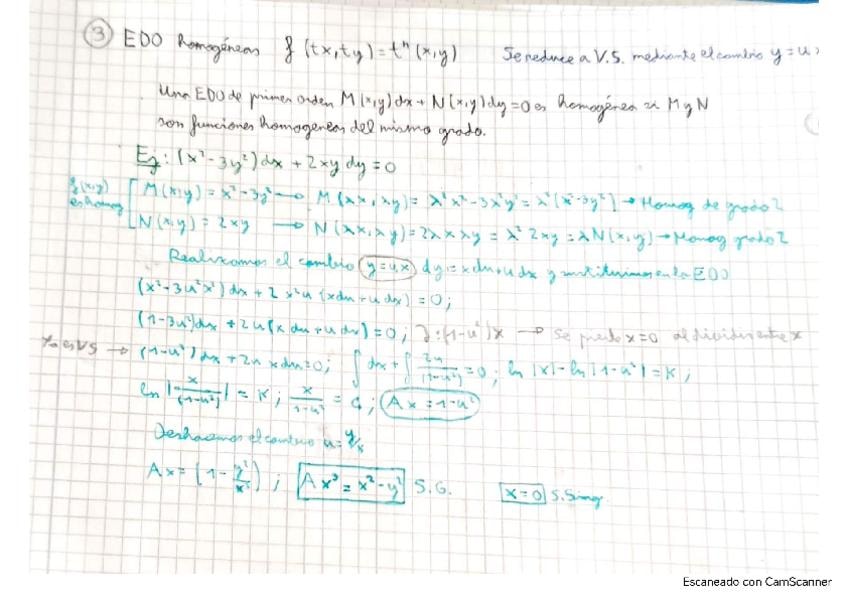 ③ EDO homogéneas f(tx,ty)=tⁿ(x,y) Se reduce a V.S. mediante el cambio y=u
Una EDO de primer orden M(x,y)dx+N(x,y)dy=0 es homogénea si M y N
son funciones homogéneas del mismo grado.
Ej: (x²-3y²)dx + 2xy dy = 0
f(x,y) es homog [ M(x,y)=x²-3y² → M(λx,λy)= λ²x²-3λ²y²=λ²[x²-3y²] → Homog de grado 2
N(x,y)=2xy → N(λx,λy)=2λxλy = λ²2xy=λN(x,y) → Homog grado 2
Realizamos el cambio (y=u.x) dy=xdu+udx y sustituimos en la EDO
(x²-3u²x²)dx+2x²u(xdu+udx)=0;
(1-3u²)dx+2u(xdu+udx)=0; :(1-u²)x → Se pierde x=0 al dividir entre x
Ya es VS → (1-u²)dx+2u xdu=0; ∫ dx+∫ 2u/(1-u²)=0; ln|x|-ln|1-u²|=K;
ln|x/(1-u²)|=K; x/1-u² = ; Ax=1-u²
Deshacemos el cambio u=y/x
Ax=(1-y²/x²); Ax³=x²-y² S.G. x=0 S.Sing.
Escaneado con CamScanner